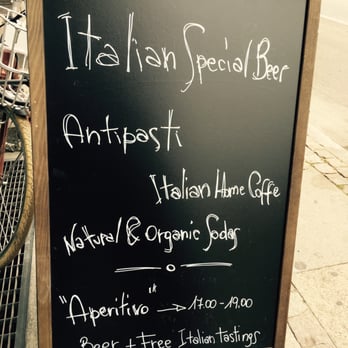 Italian Special Beer
Antipasti
Italian Home Coffe
Natural & Organic Sodas
"Aperitivo" → 17.00 - 19.00
Beer + Free Italian tastings